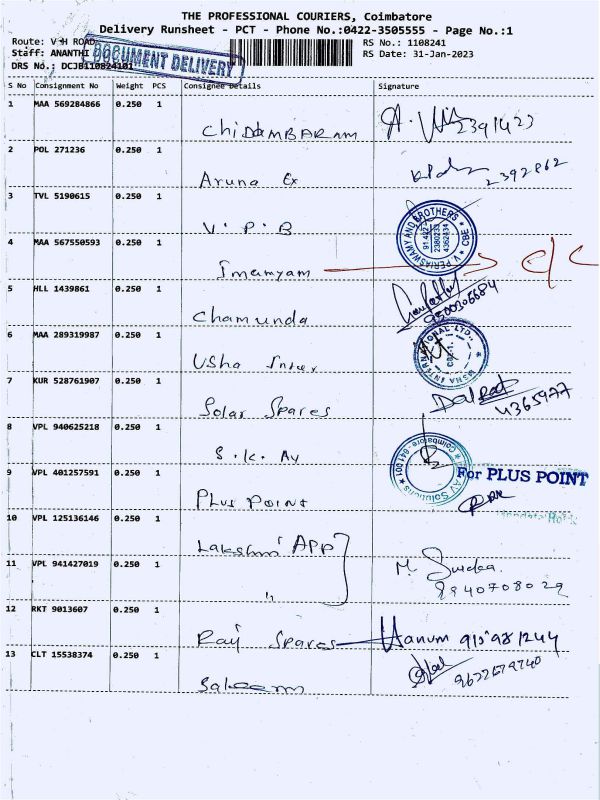 THE PROFESSIONAL COURIERS, Coimbatore
Delivery Runsheet - PCT - Phone No.:0422-3505555 - Page No.:1
Route: V H ROAD
RS No.: 1108241
Staff: ANANTHI
RS Date: 31-Jan-2023
DRS No.: DCJB110824101
DOCUMENT DELIVERY
S No Consignment No Weight PCS Consignee Details Signature
1 MAA 569284866 0.250 1
Chidambaram 2391423
2 POL 271236 0.250 1
Aruna Ex 2392862
3 TVL 5190615 0.250 1
V. P. B
V PERIASWAMY AND BROTHERS CBE
4 MAA 567550593 0.250 1
Imamyam c/c
5 HLL 1439861 0.250 1
Chamunda 9500306684
6 MAA 289319987 0.250 1
Usha Inter
USHA INTERNATIONAL LTD.,
7 KUR 528761907 0.250 1
Solar Spares 4365977
8 VPL 940625218 0.250 1
S. K. AV
AV Solutions Coimbatore 641 001
9 VPL 401257591 0.250 1
Plus Point
For PLUS POINT
10 VPL 125136146 0.250 1
Lakshmi APP
11 VPL 941427019 0.250 1
"
9940708029
12 RKT 9013607 0.250 1
Raj Spares Hanum
13 CLT 15538374 0.250 1
Saleem